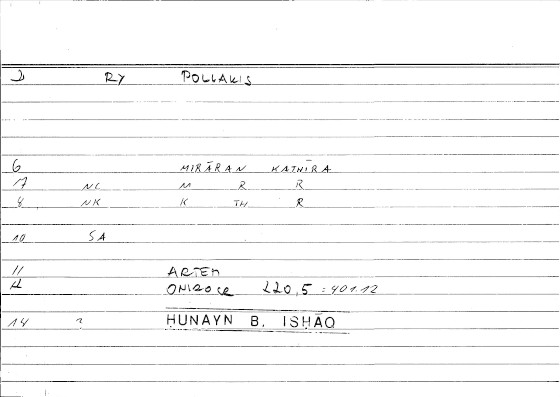 2 RY POLLAKIS
6 MIRĀRAN KATHĪRA
7 NC M R R
8 NK K TH R
10 SA
11 ARTEM
12 ONIROCR 220,5 : 401.12
14 ? HUNAYN B. ISHĀQ